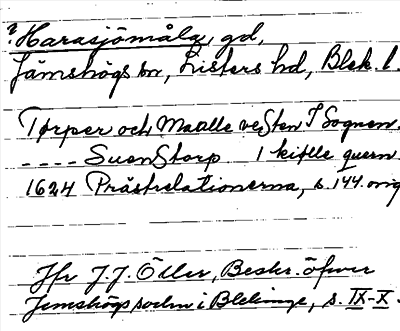 ? Harasjömåla, gd,
Jämshögs sn, Listers hd, Blek. l.
Torper och Maalle vesten I Sognen.
---- Suenstorp 1 kiølle quern
1624 Prästrelationerna, s. 144. orig
Jfr J.J. Öller, Beskr. öfwer
Jemshögs sochn i Blekinge, s. IX-X.